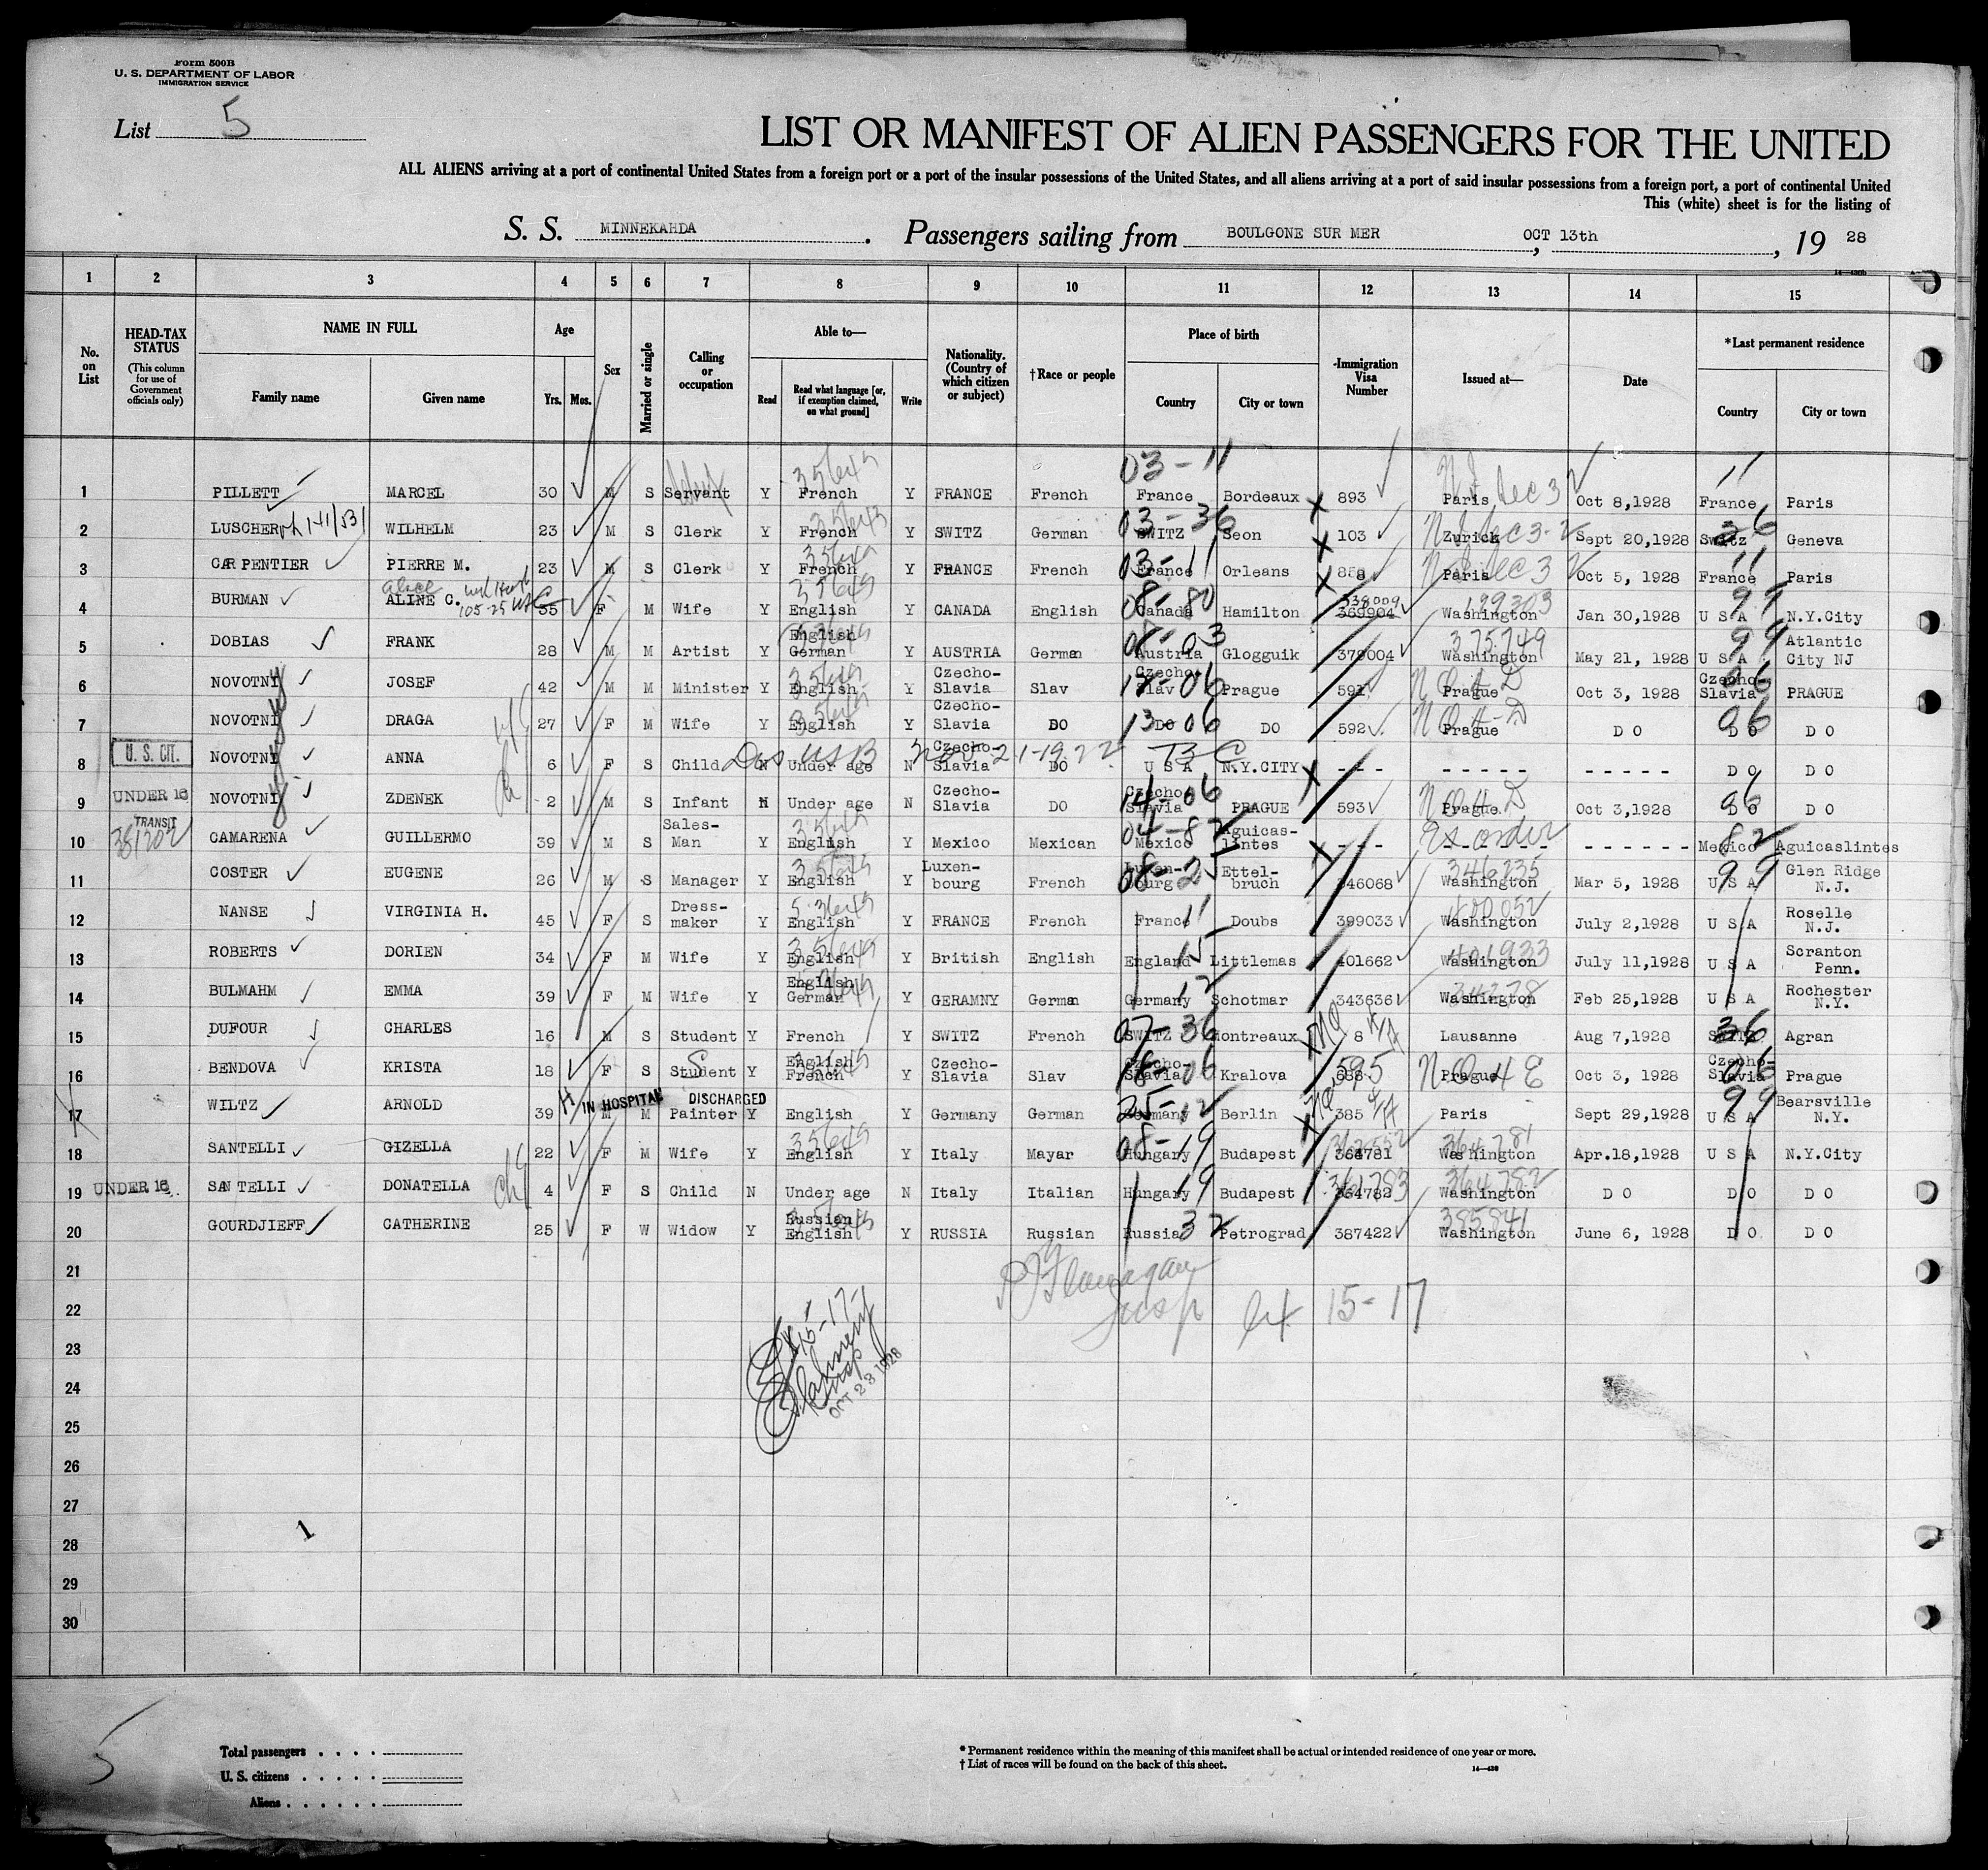 Form 500B
U. S. DEPARTMENT OF LABOR
IMMIGRATION SERVICE
List 5
LIST OR MANIFEST OF ALIEN PASSENGERS FOR THE UNITED
ALL ALIENS arriving at a port of continental United States from a foreign port or a port of the insular possessions of the United States, and all aliens arriving at a port of said insular possessions from a foreign port, a port of continental United
This (white) sheet is for the listing of
S. S. MINNEKAHDA. Passengers sailing from BOULGONE SUR MER, OCT 13th, 19 28
1 2 3 4 5 6 7 8 9 10 11 12 13 14 15
No. on List
HEAD-TAX STATUS (This column for use of Government officials only)
NAME IN FULL Family name Given name
Age Yrs. Mos.
Sex
Married or single
Calling or occupation
Able to— Read Read what language [or, if exemption claimed, on what ground] Write
Nationality. (Country of which citizen or subject)
†Race or people
Place of birth Country City or town
-Immigration Visa Number
Issued at—
Date
*Last permanent residence Country City or town
1 PILLETT MARCEL 30 M S Servant Y French Y FRANCE French France Bordeaux 893 Paris Oct 8,1928 France Paris
2 LUSCHER WILHELM 23 M S Clerk Y French Y SWITZ German SWITZ Seon 103 Zurick Sept 20,1928 Switz Geneva
3 CARPENTIER PIERRE M. 23 M S Clerk Y French Y FRANCE French France Orleans 858 Paris Oct 5, 1928 France Paris
4 BURMAN Alice ALINE C. 35 F M Wife Y English Y CANADA English Canada Hamilton 369904 Washington Jan 30,1928 U S A N.Y.City
5 DOBIAS FRANK 28 M M Artist Y English German Y AUSTRIA German Austria Glogguik 379004 375749 Washington May 21, 1928 U S A Atlantic City NJ
6 NOVOTNY JOSEF 42 M M Minister Y English Y Czecho-Slavia Slav Czecho-Slav Prague 591 Prague Oct 3, 1928 Czecho-Slavia PRAGUE
7 NOVOTNY DRAGA 27 F M Wife Y English Y Czecho-Slavia DO DO DO 592 Prague D O D O D O
8 U. S. CIT. NOVOTNY ANNA 6 F S Child N Under age N Czecho-Slavia DO U S A N.Y.CITY - - - - - - - - - - - D O D O
9 UNDER 16 NOVOTNY ZDENEK 2 M S Infant N Under age N Czecho-Slavia DO Czecho-Slavia PRAGUE 593 Prague Oct 3,1928 D O D O
10 TRANSIT CAMARENA GUILLERMO 39 M S Sales-Man Y English Y Mexico Mexican Mexico Aguicas-lintes - - - - - - - - - - - - Mexico Aguicaslintes
11 COSTER EUGENE 26 M S Manager Y English Y Luxen-bourg French Luxen-bourg Ettel-bruch 346068 346735 Washington Mar 5, 1928 U S A Glen Ridge N.J.
12 NANSE VIRGINIA H. 45 F S Dress-maker Y English Y FRANCE French France Doubs 399033 Washington July 2,1928 U S A Roselle N.J.
13 ROBERTS DORIEN 34 F M Wife Y English Y British English England Littlemas 401662 401933 Washington July 11,1928 U S A Scranton Penn.
14 BULMAHM EMMA 39 F M Wife Y English German Y GERAMNY German Germany Schotmar 343636 Washington Feb 25,1928 U S A Rochester N.Y.
15 DUFOUR CHARLES 16 M S Student Y French Y SWITZ French SWITZ Montreaux 8 Lausanne Aug 7,1928 SWITZ Agran
16 BENDOVA KRISTA 18 F S Student Y English French Y Czecho-Slavia Slav Czecho-Slavia Kralova 595 Prague Oct 3, 1928 Czecho-Slavia Prague
17 WILTZ ARNOLD 39 IN HOSPITAL DISCHARGED M M Painter Y English Y Germany German Germany Berlin 385 Paris Sept 29,1928 U S A Bearsville N.Y.
18 SANTELLI GIZELLA 22 F M Wife Y English Y Italy Mayar Hungary Budapest 364781 364781 Washington Apr.18,1928 U S A N.Y.City
19 UNDER 16 SANTELLI DONATELLA 4 F S Child N Under age N Italy Italian Hungary Budapest 364782 364782 Washington D O D O D O
20 GOURDJIEFF CATHERINE 25 F W Widow Y Russian English Y RUSSIA Russian Russia Petrograd 387422 385841 Washington June 6, 1928 D O D O
21
22 15-17
23
24 OCT 23 1928
25
26
27
28 1
29
30
5
Total passengers . . . .
U. S. citizens . . . . .
Aliens . . . . . .
* Permanent residence within the meaning of this manifest shall be actual or intended residence of one year or more.
† List of races will be found on the back of this sheet.